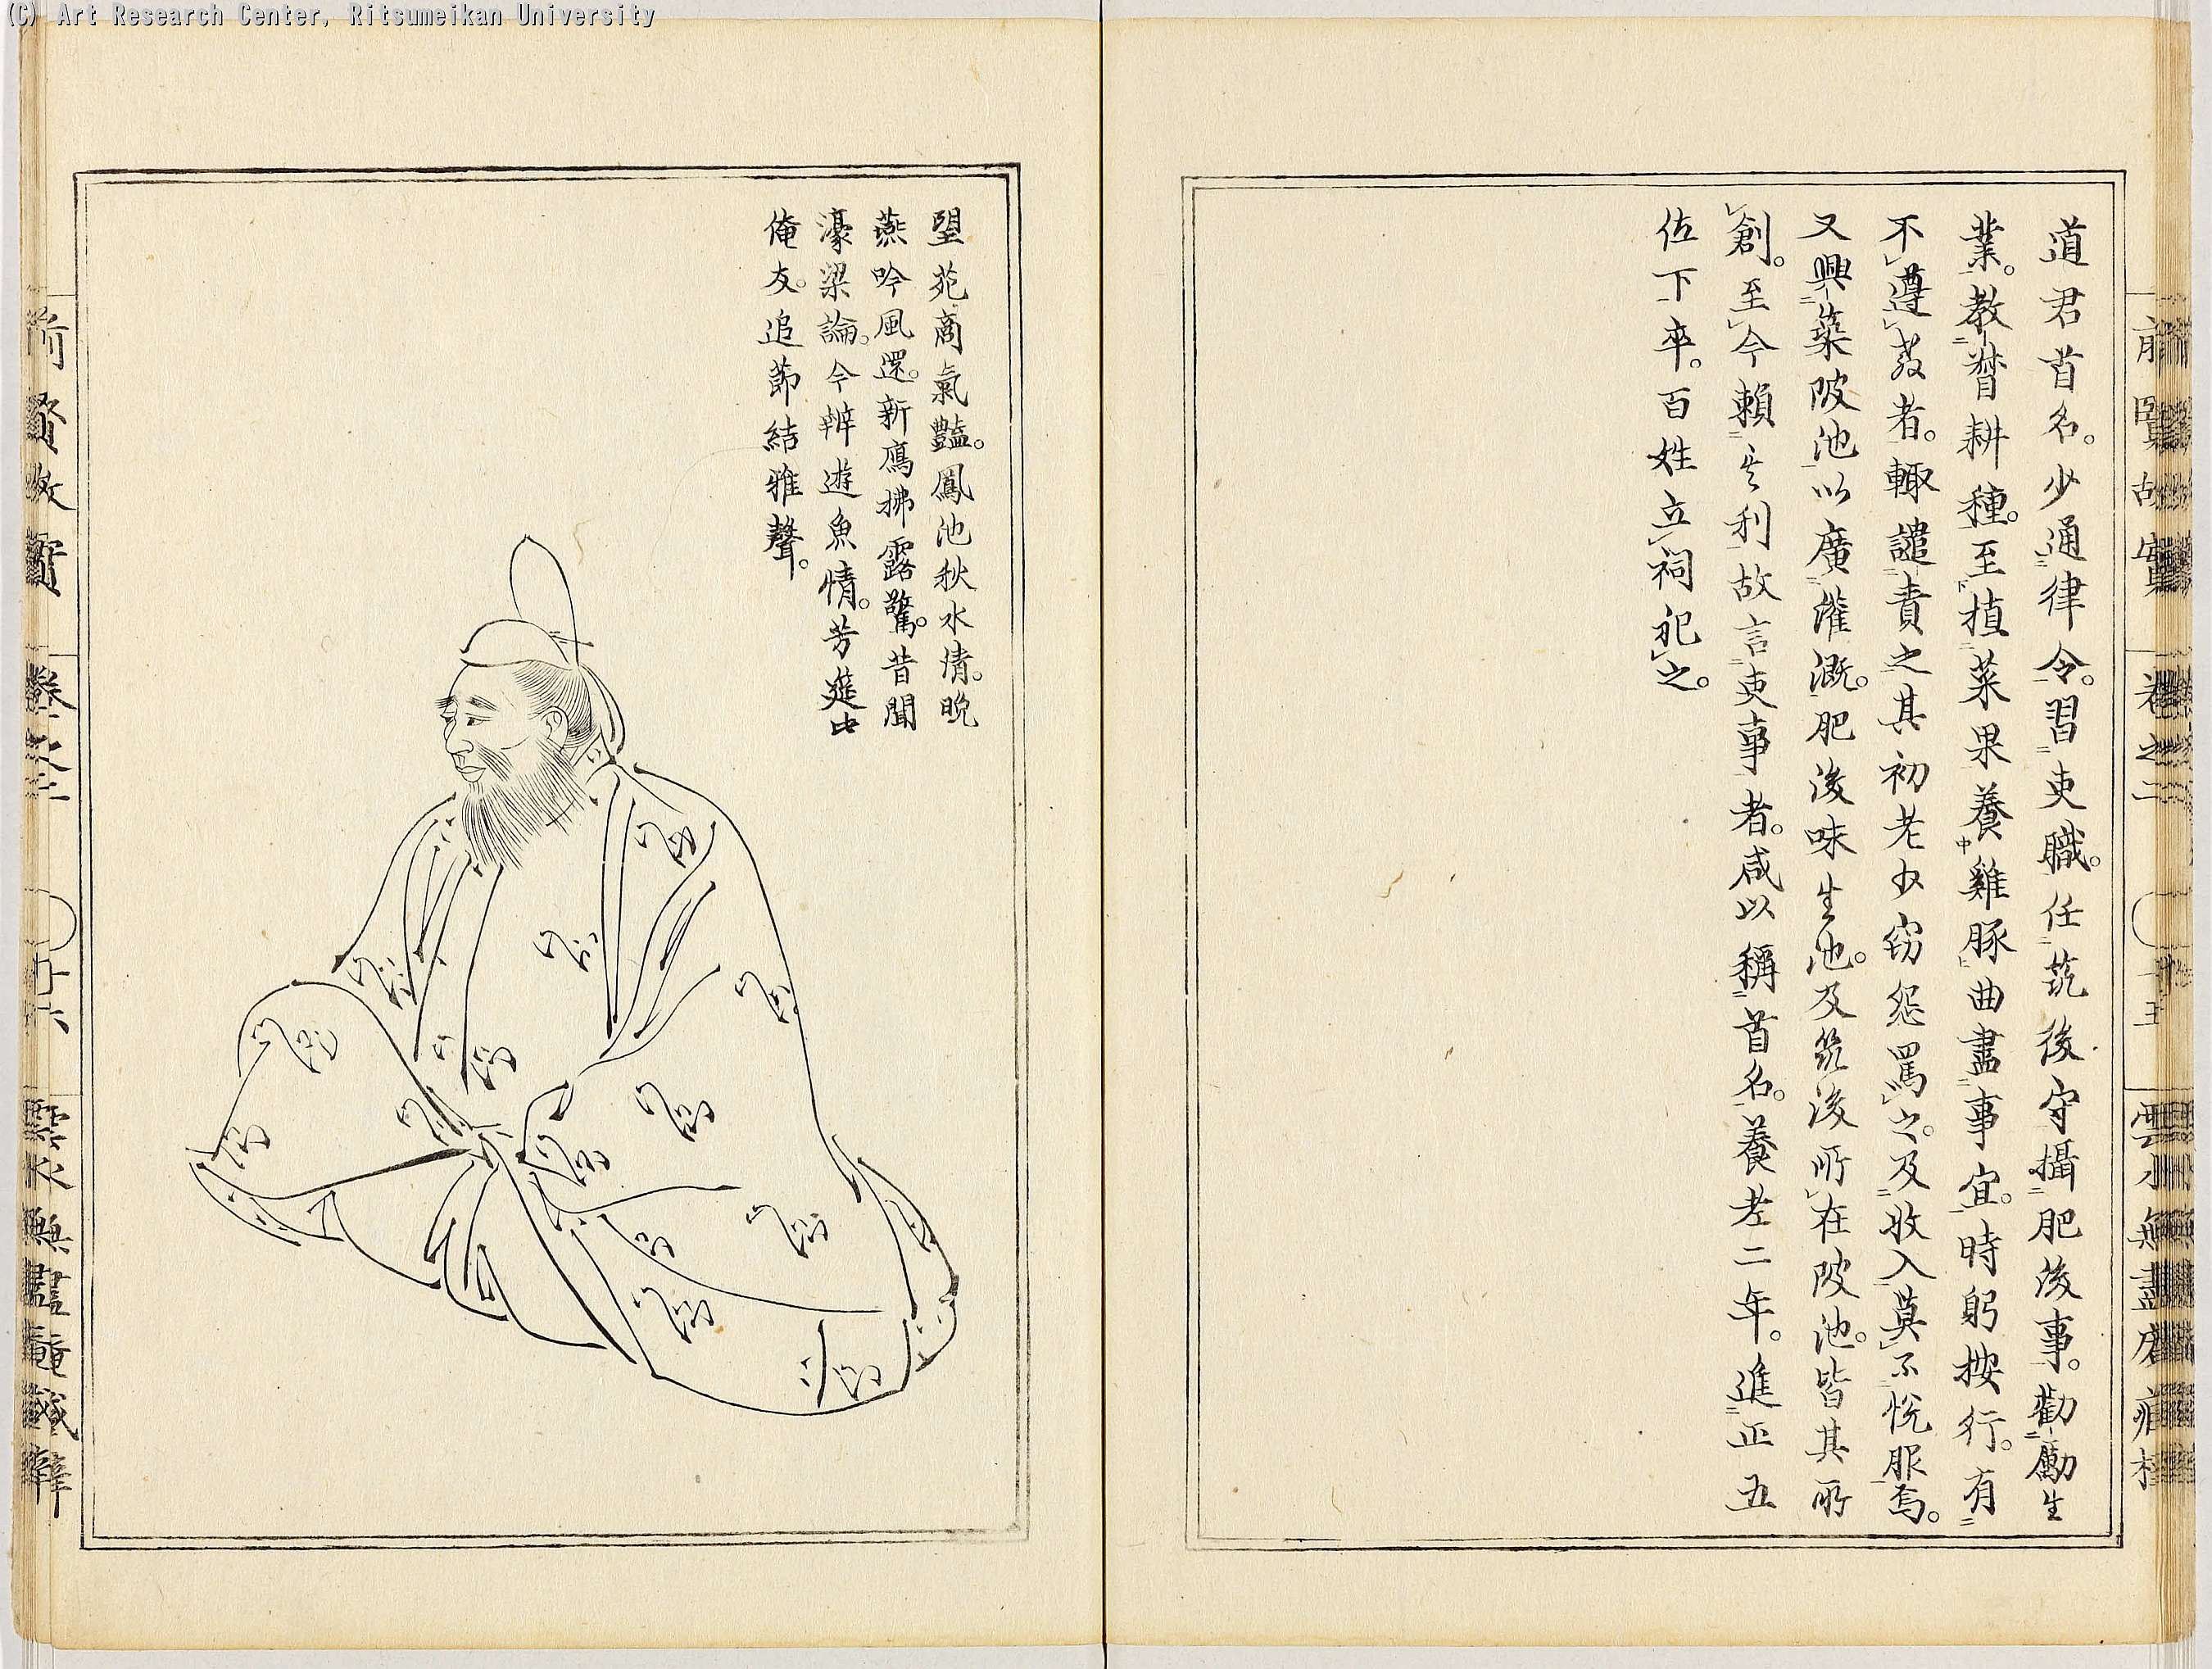 (C) Art Research Center, Ritsumeikan University
道君首名。少通律令。習吏職。任筑後守攝肥後事。勸勵生
業。教督耕種。至植菜果養雞豚曲盡事宜。時躬按行。有
不遵教者。輙譴責之其初老少窃怨罵之。及收入莫不悅服焉。
又興築陂池以廣灌漑。肥後味生池。及筑後所在陂池。皆其所
創。至今賴其利故言吏事者。咸以稱首名。養老二年。進正五
位下卒。百姓立祠祀之。
望苑商氣豔。鳳池秋水清。晚
燕吟風還。新鴈拂露驚。昔聞
濠梁論。今辨遊魚情。芳筵此
僚友。追節結雅聲。
前賢故實 卷之二 十五 雲水無盡庵藏梓
前賢故實 卷之二 十六 雲水無盡庵藏梓